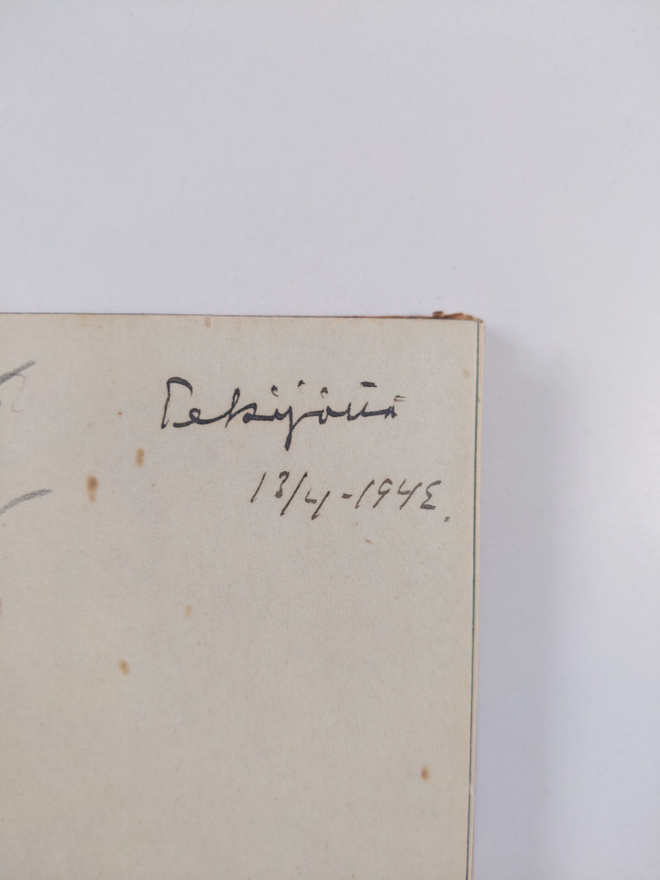 Tekijöltä
13/4-1943.